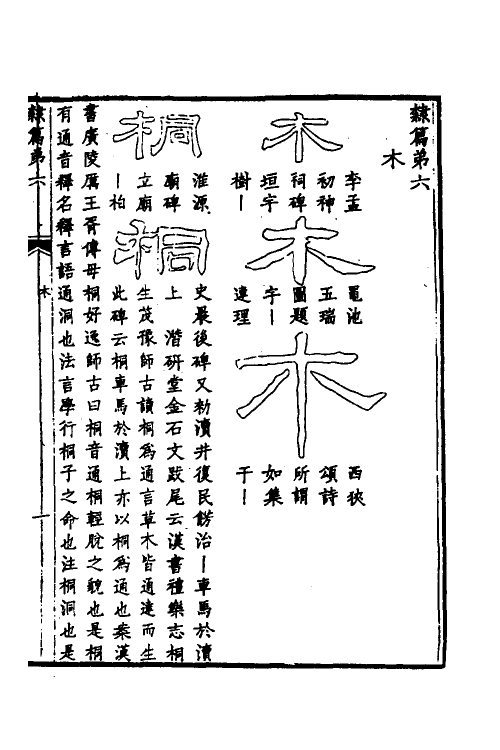 隸篇弟六
木
木
李孟
初神
祠碑
垣宇
樹丨
木
黽池
五瑞
圖題
字丨
連理
木
西狹
頌詩
所謂
如集
于丨
桐
淮源
廟碑
立廟
丨柏
桐
史晨後碑又勑瀆井復民餝治丨車馬於瀆
上　潛硏堂金石文跋尾云漢書禮樂志桐
生茂豫師古讀桐爲通言草木皆通達而生
此碑云桐車馬於瀆上亦以桐爲通也案漢
書廣陵厲王胥傳毋桐好逸師古曰桐音通桐輕脫之貌也是桐
有通音釋名釋言語通洞也法言學行桐子之命也注桐洞也是
隸篇弟六
木
一